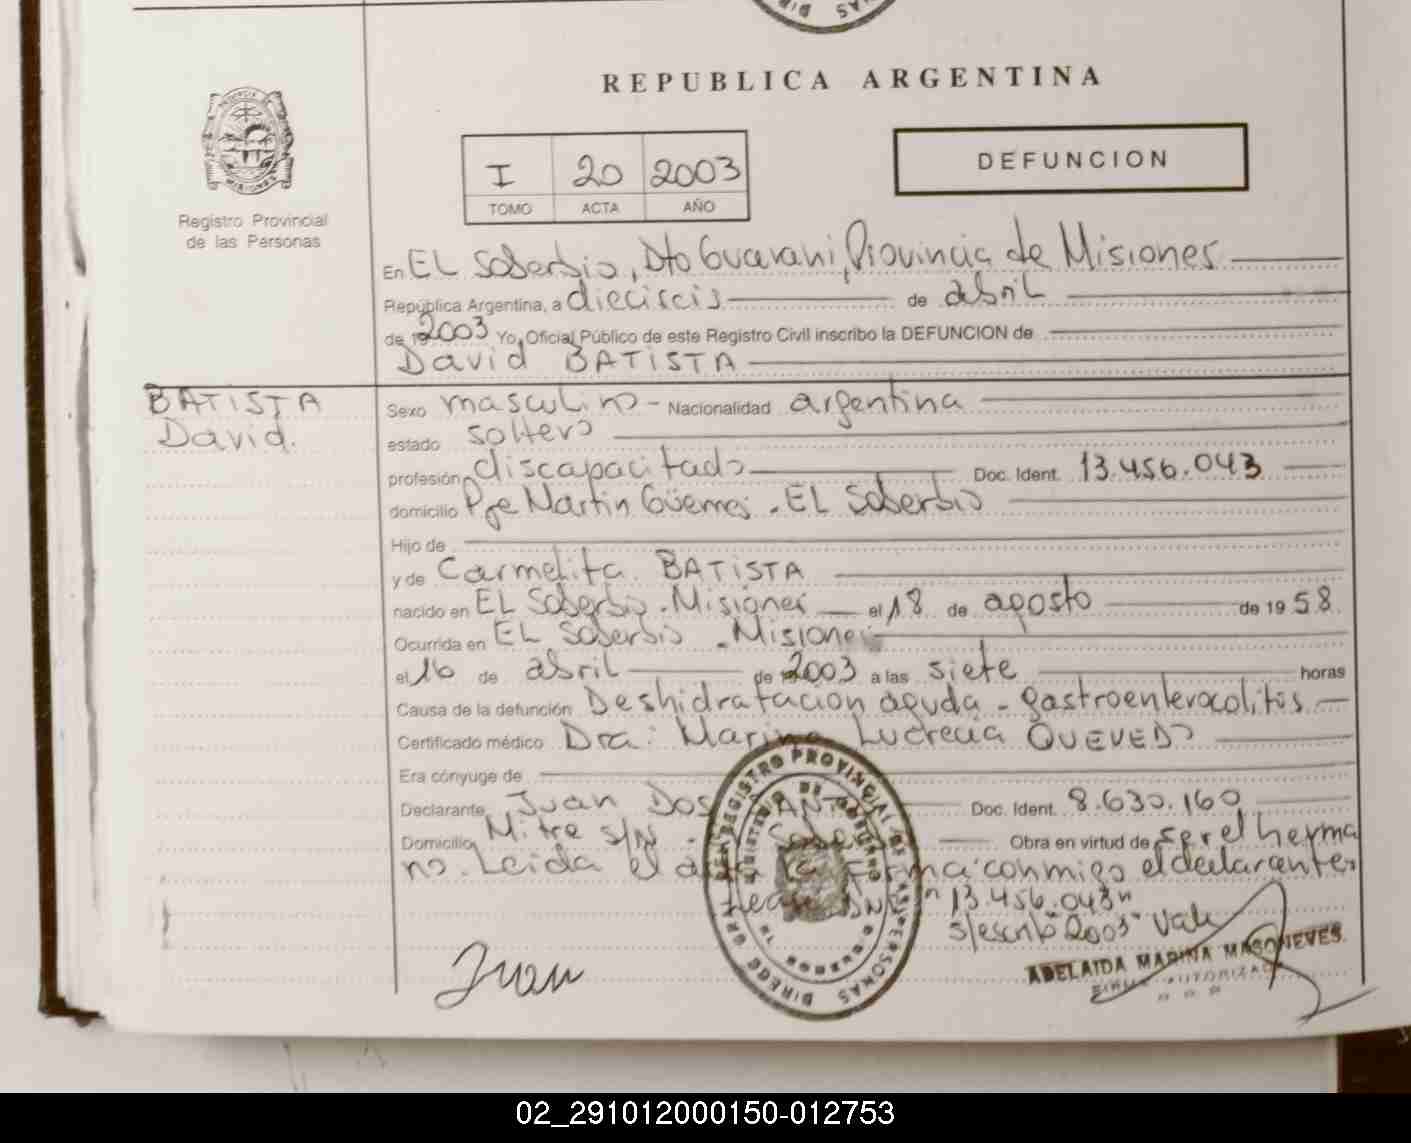 REPUBLICA ARGENTINA
I 20 2003
TOMO ACTA AÑO
DEFUNCION
Registro Provincial
de las Personas
En EL Soberbio, Dto Guarani, Provincia de Misiones
República Argentina, a dieciseis de abril
de 2003 Yo, Oficial Público de este Registro Civil inscribo la DEFUNCION de
David BATISTA
BATISTA
David.
Sexo masculino - Nacionalidad argentina
estado soltero
profesión discapacitado Doc. Ident. 13.456.043
domicilio Pje Martin Güemes - EL Soberbio
Hijo de
y de Carmelita BATISTA
nacido en EL Soberbio - Misiones el 18 de agosto de 19 58
Ocurrida en EL Soberbio - Misiones
el 16 de abril de 2003 a las siete horas
Causa de la defunción Deshidratacion aguda - gastroenterocolitis
Certificado médico Dra: Marina Lucrecia QUEVEDO
Era cónyuge de
Declarante Juan DOS SANTOS Doc. Ident. 8.630.160
Domicilio Mitre S/N - Obra en virtud de ser el herma
no. Leida el acta la firma conmigo el declarante
DNI "13.456.043"
s/escrib "2003" Vale
Juan
ADELAIDA MARINA MASONEVES
REGISTRO PROVINCIAL DE LAS PERSONAS
02_291012000150-012753